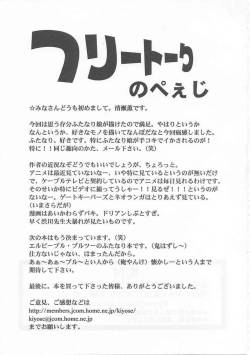 フリートーク
のぺぇじ
☆みなさんどうも初めまして。清瀬薫です。
今回は思う存分ふたなり娘が描けたので満足。やはりというか
なんというか、好きなモノを描いてなんぼだなと今回痛感しました。
ふたなり。好きです。特にふたなりの男がテコキでイカされるのが!
特に!!同じ趣向のかた、メール下さい。(笑)
作者の近況などどうでもいいでしょうが、ちょろっと。
アニメは最近見ていないな~。いや特に見ているというのが無いだけ
で、ケーブルテレビと契約しているのでアニメは毎日見れるわけで。
そのせいか特にビデオに撮ってうしゃー!!見るぜ!!というのが
ないな~。ゲートキーパーズとネオランガはとりあえず見ている。
(いまさらだが)
漫画はあいかわらずバキ。ドリアンしぶとすぎ。
早く渋川先生大暴れが見たいものです。
次の本はもう決まっています。(笑)
エルピープル・プルツーのふたなり本です。(鬼はずし~)
仕方ないじゃないか。はまったんだから。
あぁ~あぁ~プル~と云う人から(俺やんけ)懐かしーという人まで
期待して下さい。
最後に、本を買って下さった皆様、ありがとうございました。
ご意見、ご感想などは
http://members.jcom.home.ne.jp/kiyose/
kiyose@jcom.home.ne.jp
までお願いします。